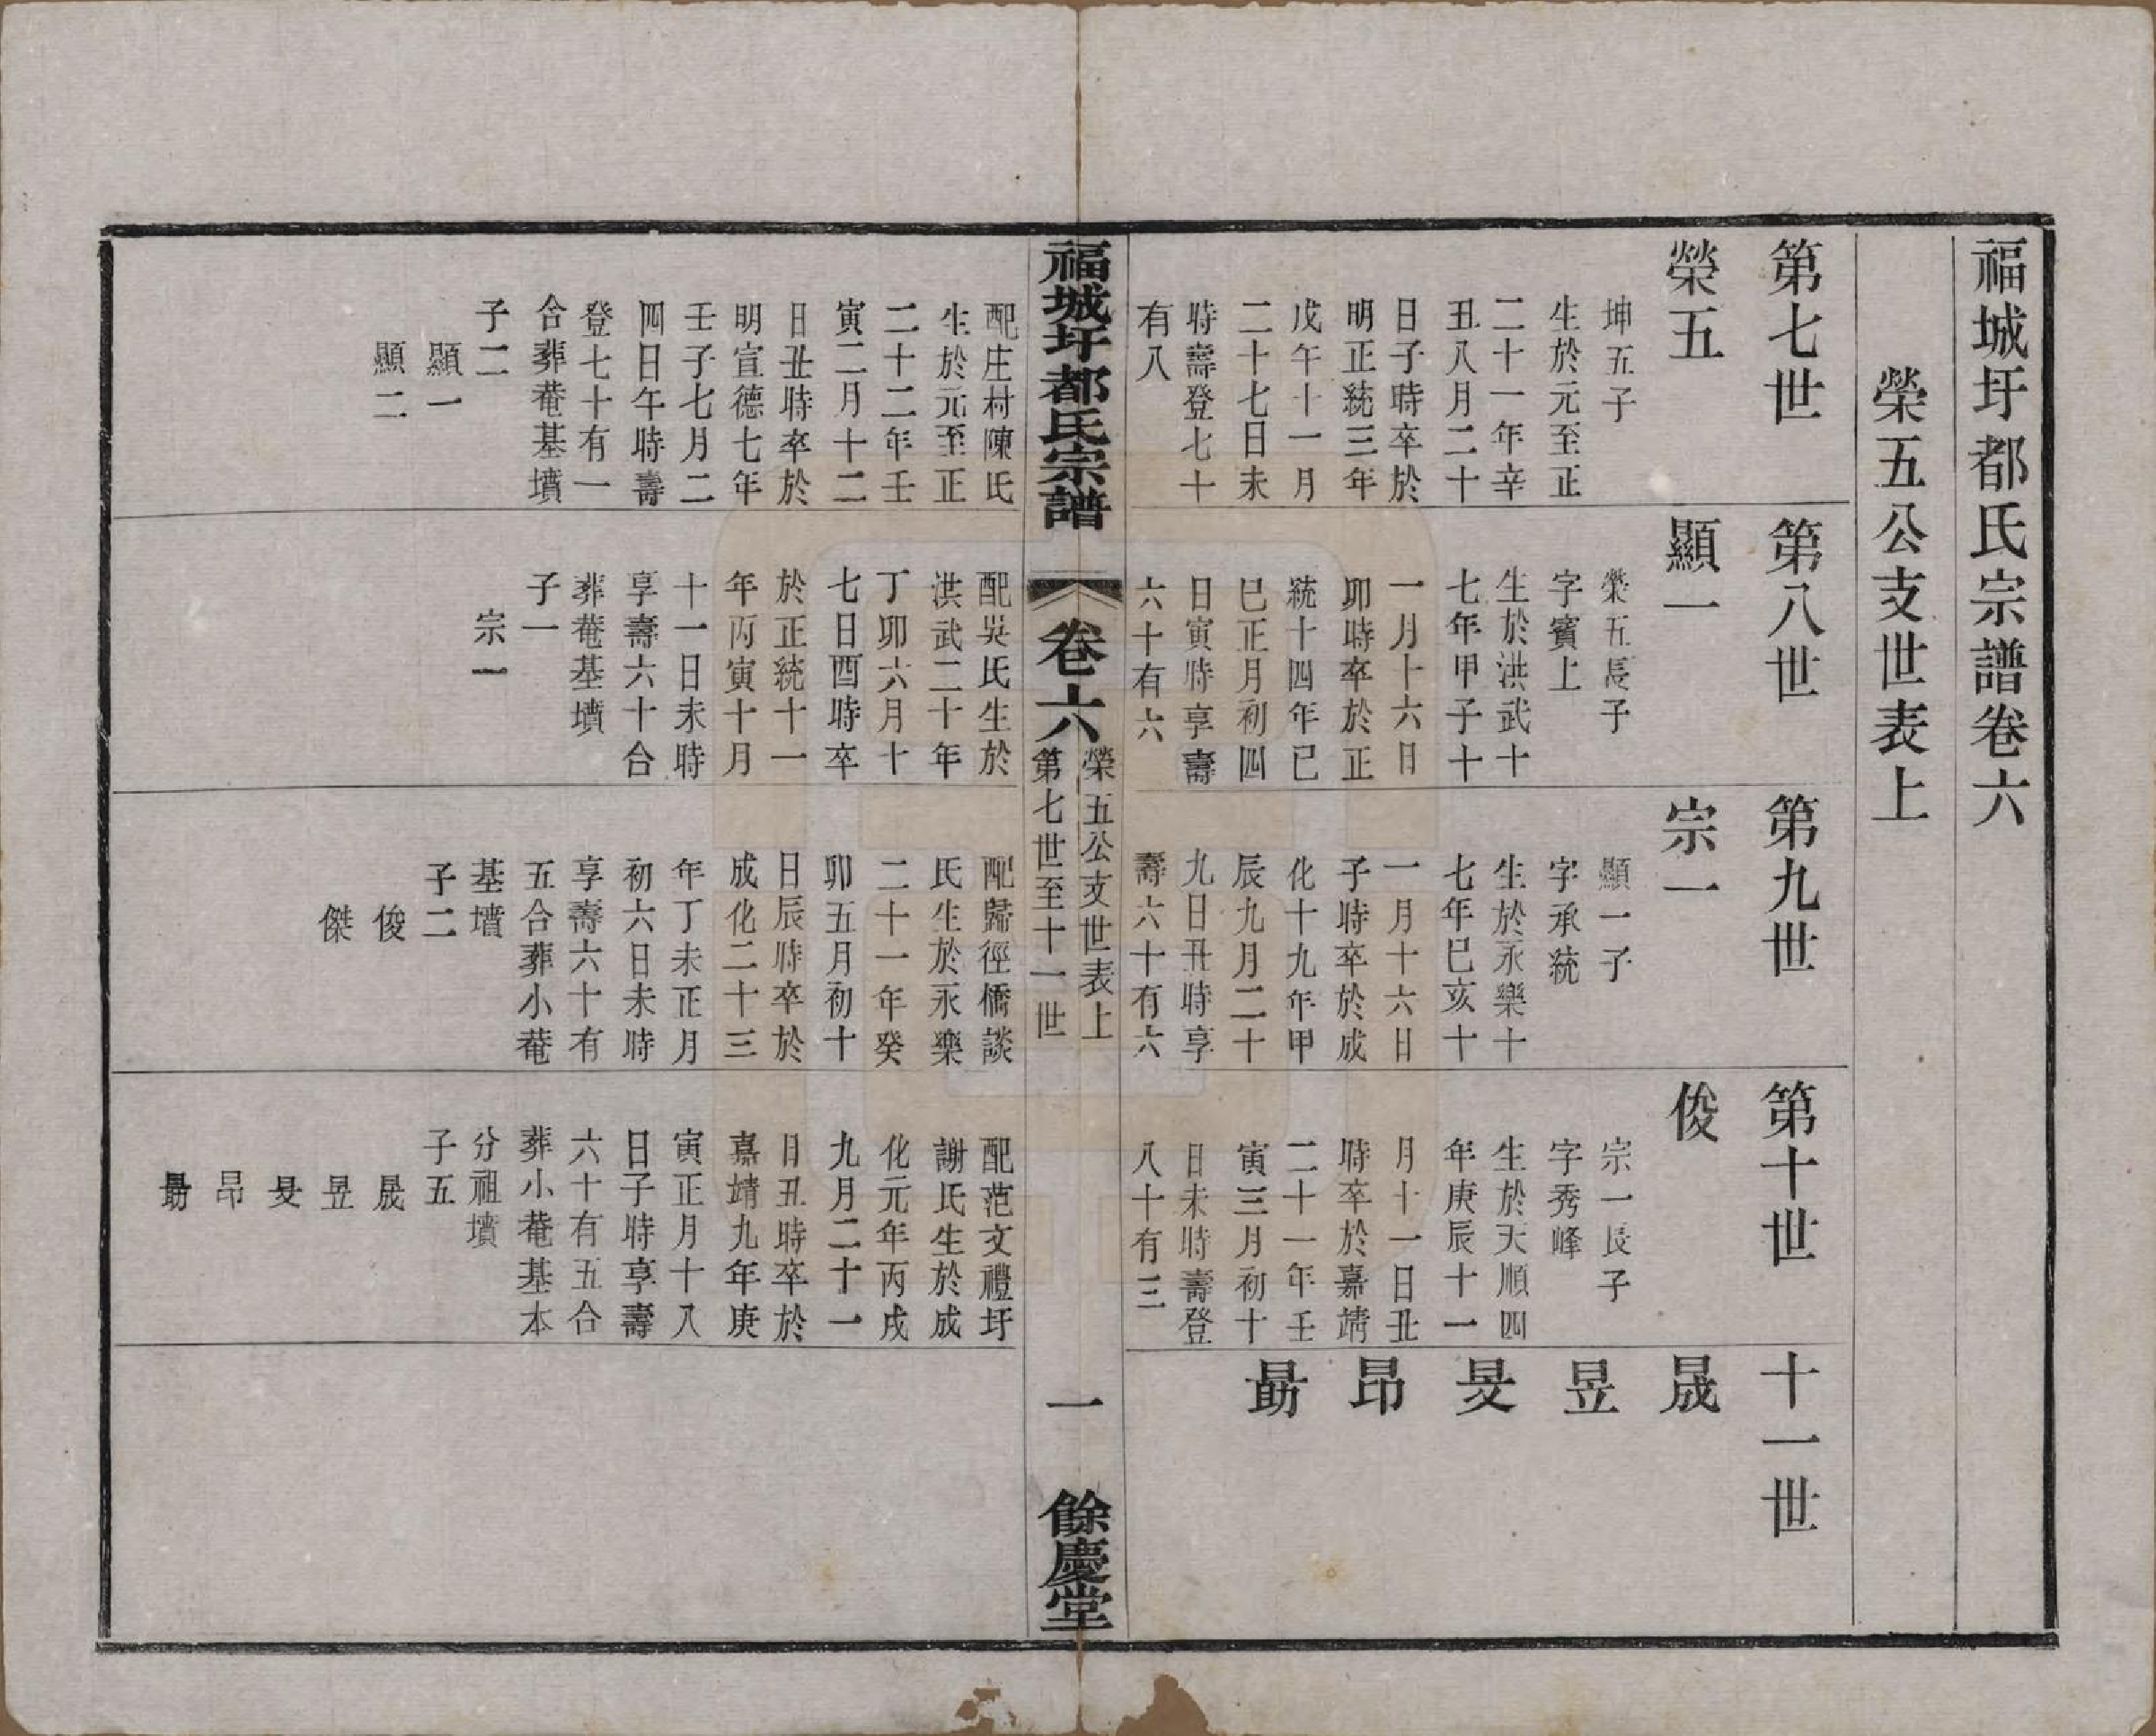 福城圩都氏宗譜卷六
榮五公支世表上
第七世
榮五
坤五子
生於元至正
二十一年辛
丑八月二十
日子時卒於
明正統三年
戊午十一月
二十七日未
時壽登七十
有八
配庄村陳氏
生於元至正
二十二年壬
寅二月十二
日丑時卒於
明宣德七年
壬子七月二
四日午時壽
登七十有一
合葬菴基墳
子二
顯一
顯二
第八世
顯一
榮五長子
字賓上
生於洪武十
七年甲子十
一月十六日
卯時卒於正
統十四年已
巳正月初四
日寅時享壽
六十有六
配吳氏生於
洪武二十年
丁卯六月十
七日酉時卒
於正統十一
年丙寅十月
十一日未時
享壽六十合
葬菴基墳
子一
宗一
第九世
宗一
顯一子
字承統
生於永樂十
七年巳亥十
一月十六日
子時卒於成
化十九年甲
辰九月二十
九日丑時享
壽六十有六
配歸徑橋談
氏生於永樂
二十一年癸
卯五月初十
日辰時卒於
成化二十三
年丁未正月
初六日未時
享壽六十有
五合葬小菴
基墳
子二
俊
傑
第十世
俊
宗一長子
字秀峰
生於天順四
年庚辰十一
月十一日丑
時卒於嘉靖
二十一年壬
寅三月初十
日未時壽登
八十有三
配范文禮圩
謝氏生於成
化元年丙戌
九月二十一
日丑時卒於
嘉靖九年庚
寅正月十八
日子時享壽
六十有五合
葬小菴基本
分祖墳
子五
晟
昱
旻
昂
勗
十一世
晟
昱
旻
昂
勗
福城圩都氏宗譜
卷六
榮五公支世表上
第七世至十一世
一
餘慶堂